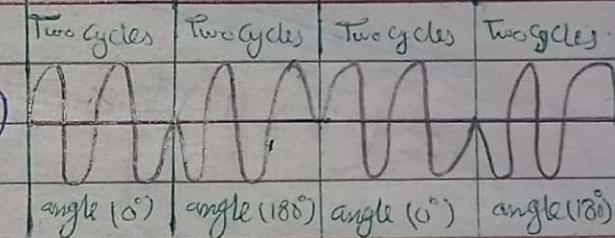 Two Cycles Two Cycles Two Cycles Two Cycles
angle (0°) angle (180°) angle (0°) angle (180°)